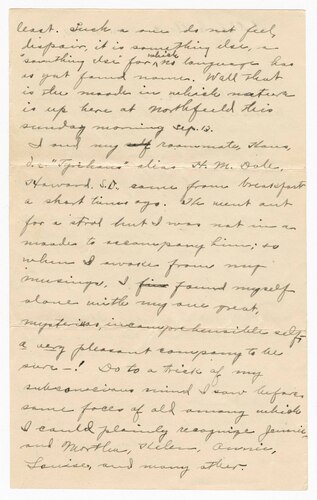 least. Such a one do not feel
despair, it is something else, a
something else for which no language has
as yet found name. Well that
is the moode in which nature
is up here at Northfield this
sunday morning Sep. 13.
I and my self roommate, Hans,
alias H. M. Dale,
Howard. S.D. came from breakfast
a short time ago. He went out
for a strol but I was not in a
moode to accompany him; so
when I awoke from my
musings, I fin found myself
alone with my one great,
mysterios, incomprehensible self,
a very pleasant company to be
sure —! Do to a trick of my
subconscious mind I saw before
some faces of old among which
I could plainly recognize Jennie,
and Martha, Helen, Annie,
Louise, and many other.